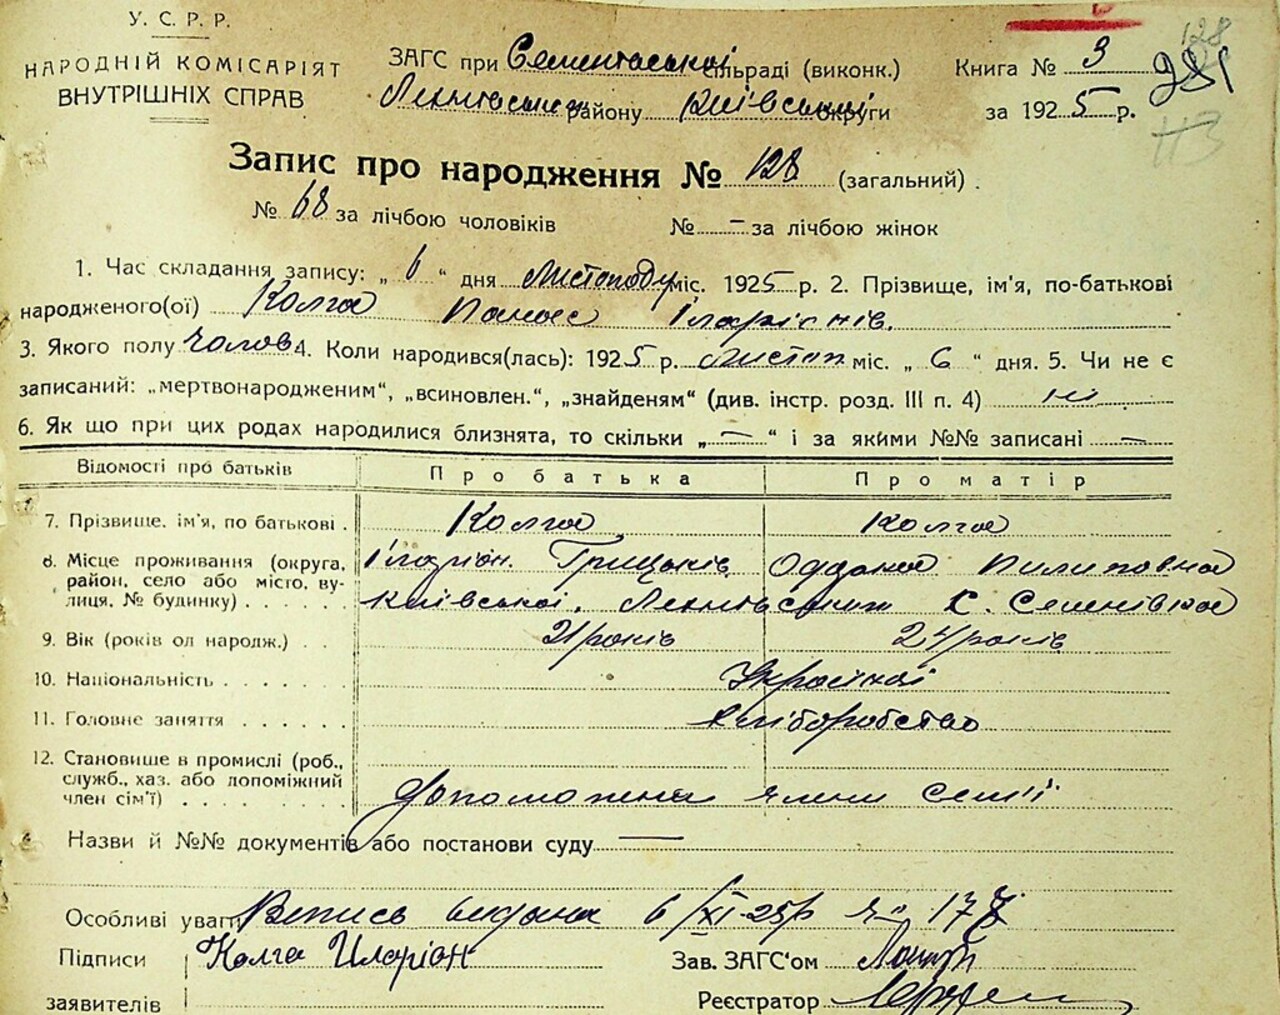 У. С. Р. Р.
НАРОДНІЙ КОМІСАРІЯТ
ВНУТРІШНІХ СПРАВ
ЗАГС при сільраді (виконк.)
району Київської округи
Книга № 3
за 1925 р.
128
251
113
Запис про народження № 128 (загальний).
№ 68 за лічбою чоловіків № — за лічбою жінок
1. Час складання запису: „ 6 “ дня Листопаду міс. 1925 р. 2. Прізвище, ім'я, по-батькові
народженого(ої) Колга Панас Іларіонів.
3. Якого полу Чолов 4. Коли народився(лась): 1925 р. Листоп міс. „ 6 “ дня. 5. Чи не є
записаний: „мертвонародженим“, „всиновлен.“, „знайденям“ (див. інстр. розд. III п. 4) ні
6. Як що при цих родах народилися близнята, то скільки „ — “ і за якими №№ записані —
Відомості про батьків Про батька Про матір
7. Прізвище, ім'я, по батькові . Колга Колга
Іларіон. Грицьків Оддана Пилиповна
8. Місце проживання (округа,
район, село або місто, ву-
лиця, № будинку) . . . . . Київської, с. Семенівка
9. Вік (років од народж.) . . 21 років 24 років
10. Національність . . . . . . Українці
11. Головне заняття . . . . . . хліборобство
12. Становище в промислі (роб.,
служб., хаз. або допоміжний
член сім'ї) . . . . . . . . Допоможена члени семії
Назви й №№ документів або постанови суду —
Особливі уваги Випись видана 6/XI-25р 17
Підписи Колга Иларіон Зав. ЗАГС'ом
заявителів Реєстратор